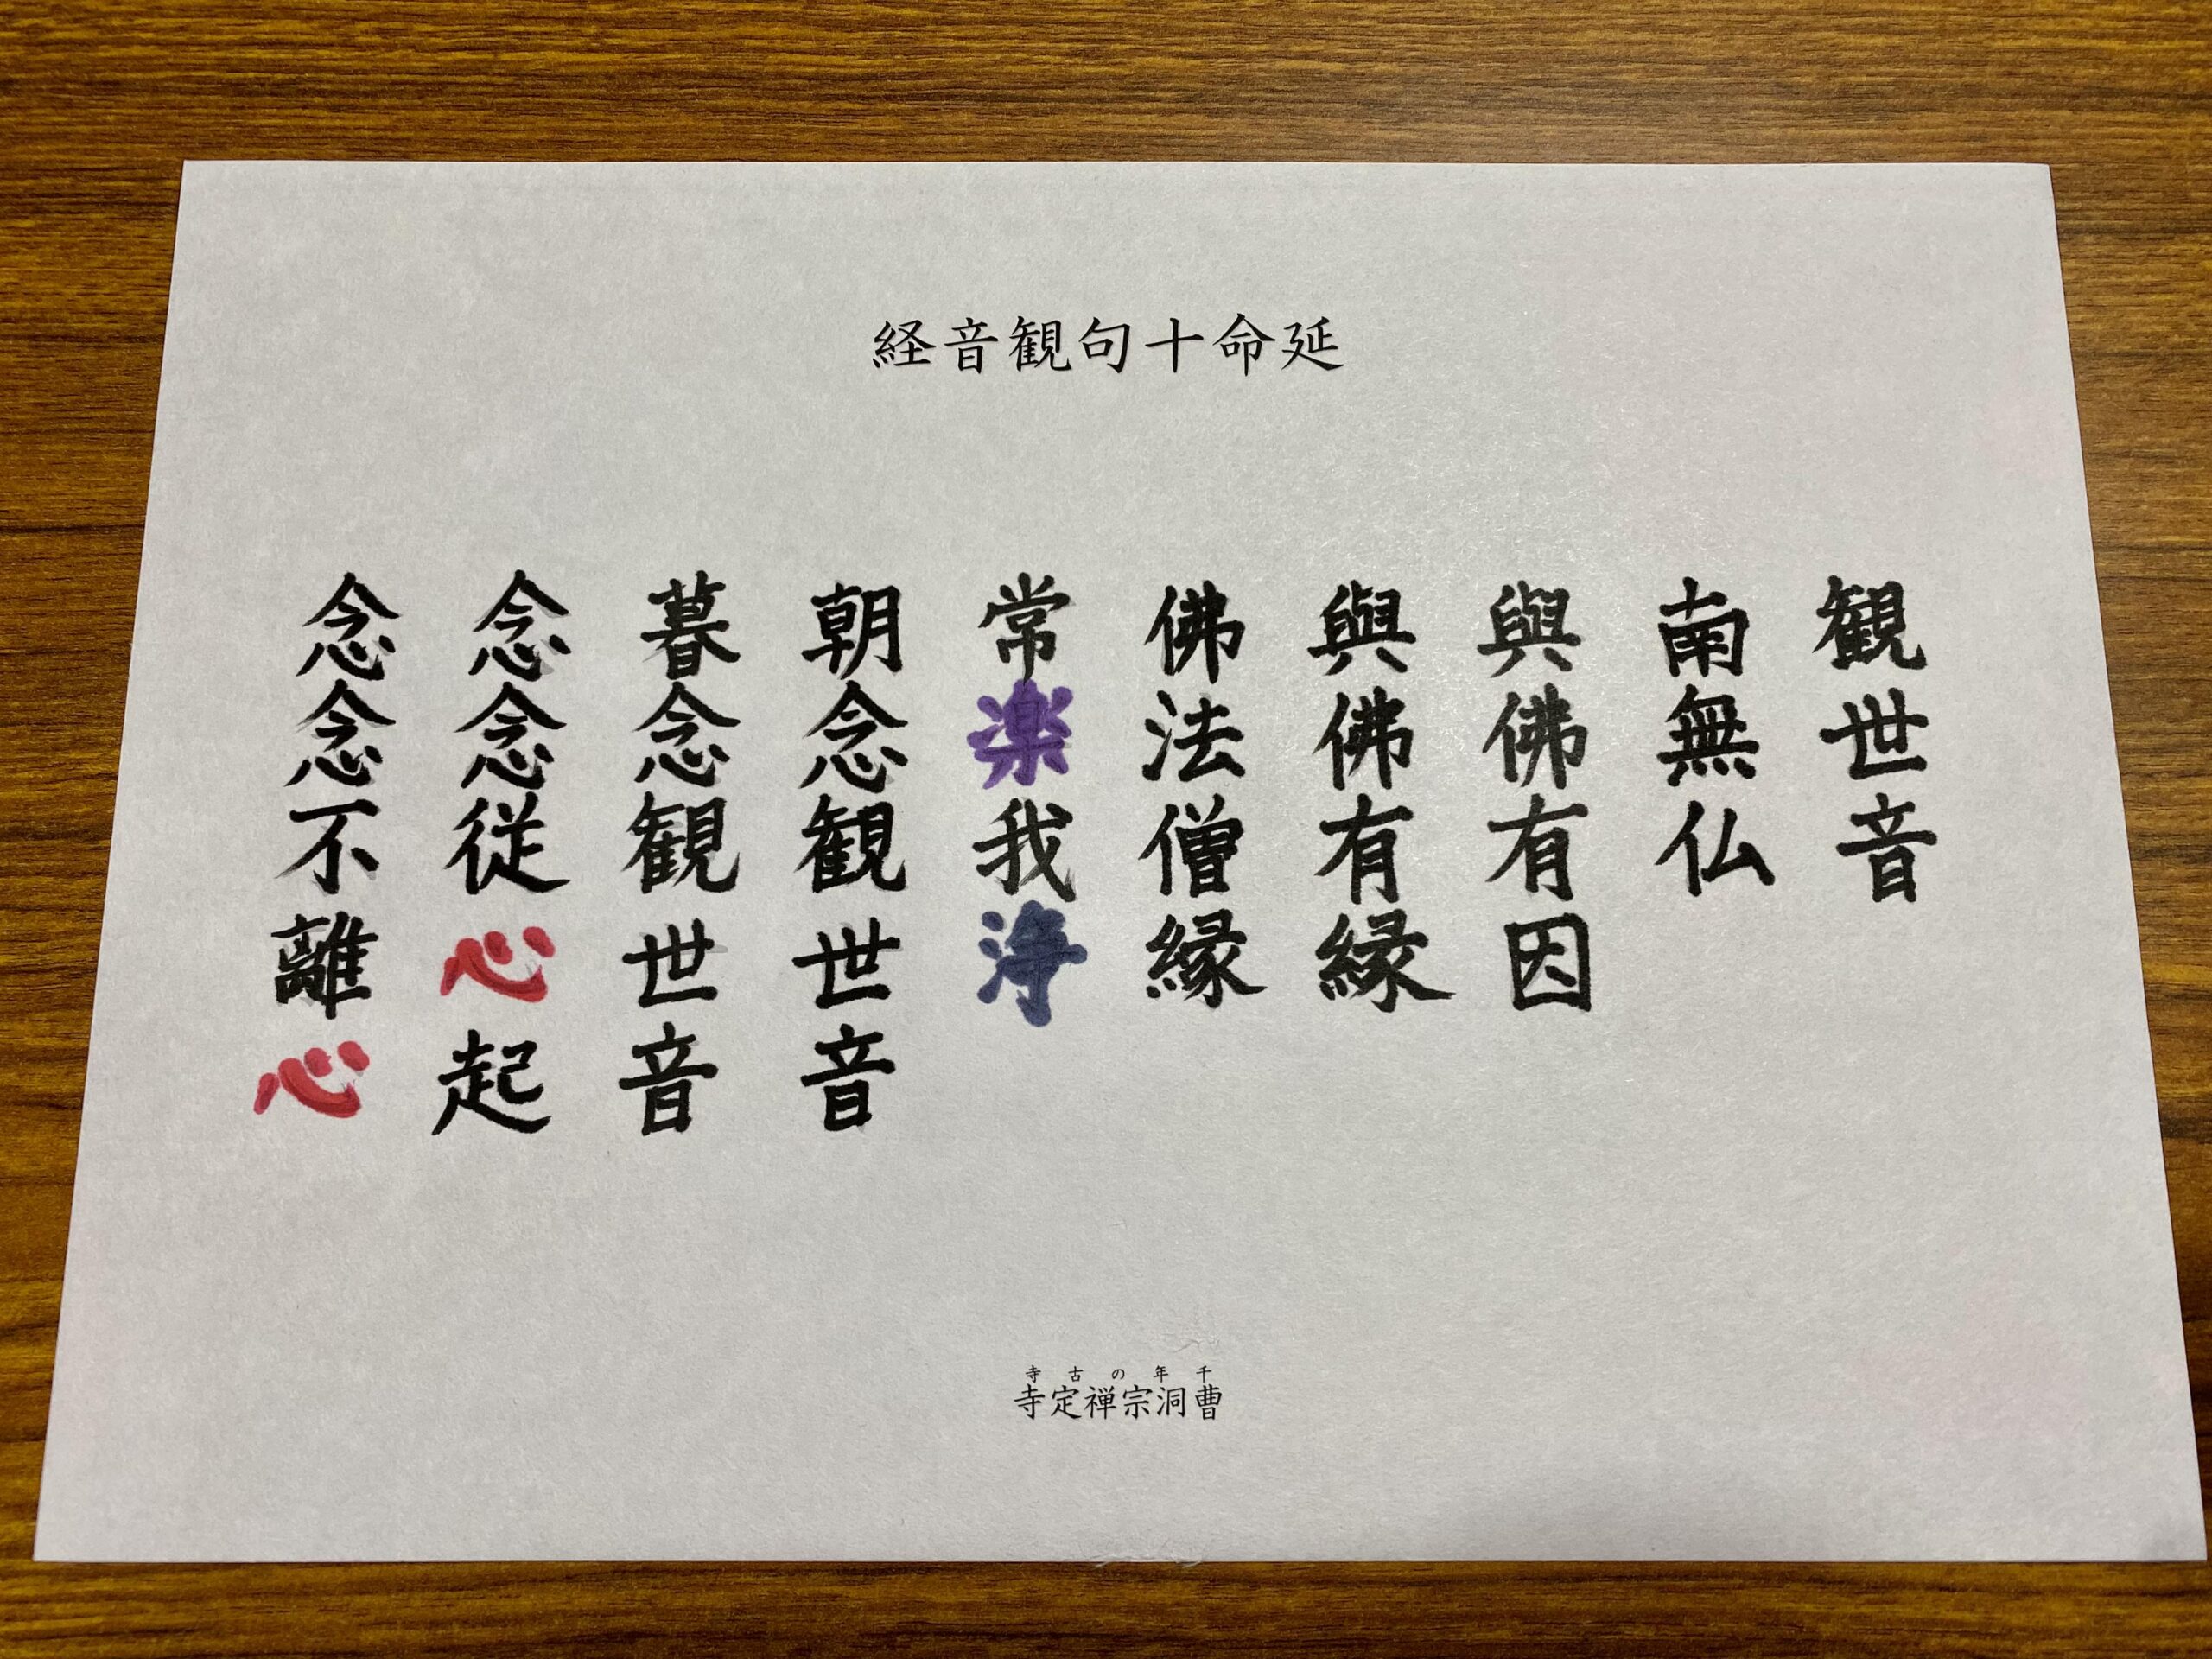 延命十句観音経
観世音
南無仏
與佛有因
與佛有縁
佛法僧縁
常楽我浄
朝念観世音
暮念観世音
念念従心起
念念不離心
千年の古寺
曹洞宗禅定寺